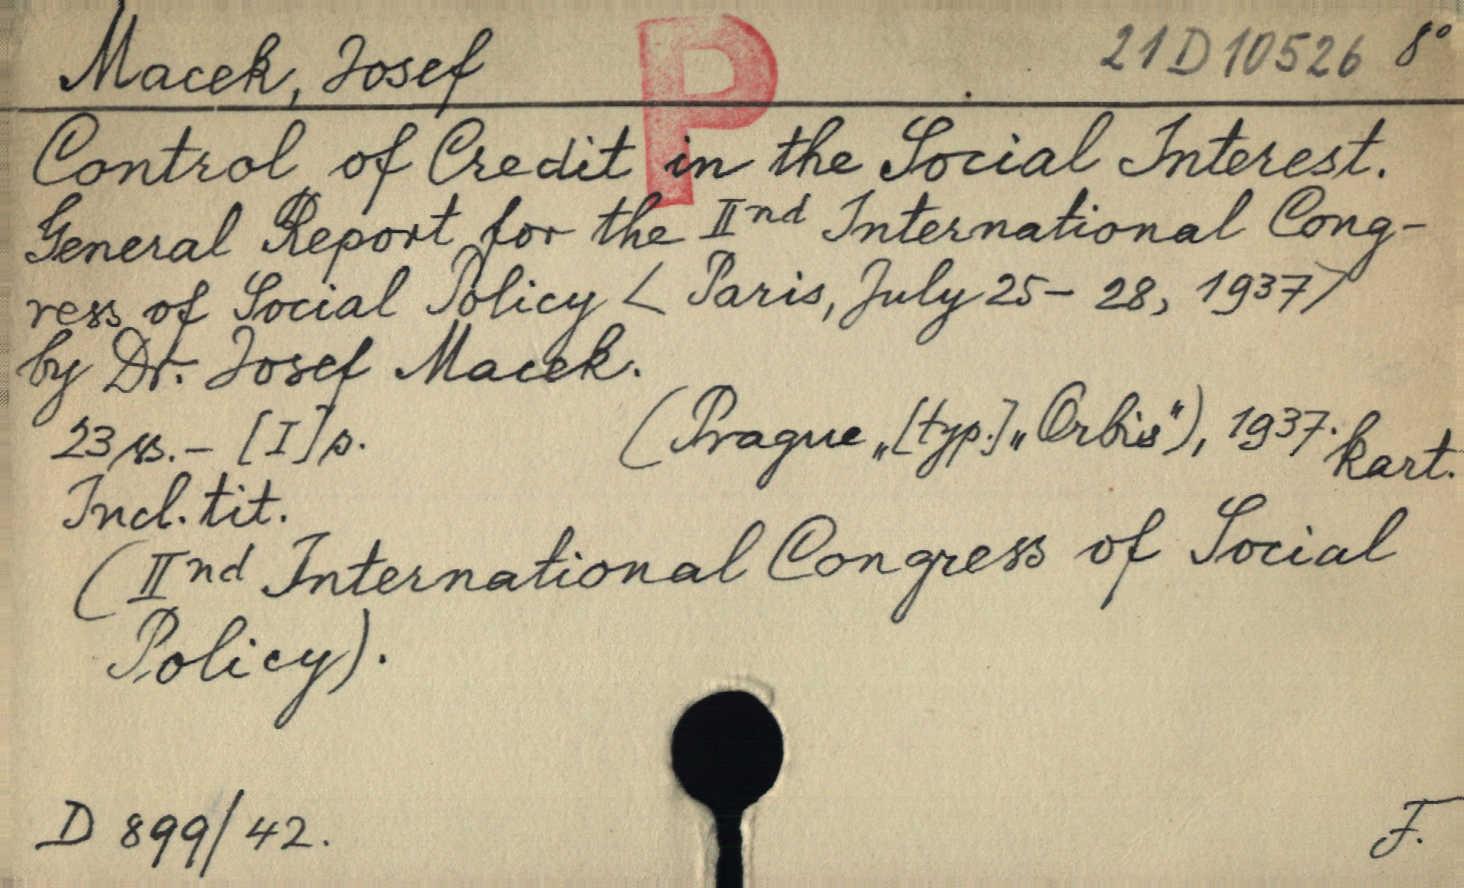 Macek, Josef P 21 D 10526 8°
Control of Credit in the Social Interest.
General Report for the IInd International Cong-
ress of Social Policy < Paris, July 25 - 28, 1937>
by Dr. Josef Macek.
23 ss. - [I] s. (Prague „[typ.] „Orbis"), 1937. kart.
Incl. tit.
(IInd International Congress of Social
Policy).
D 899/42. F.